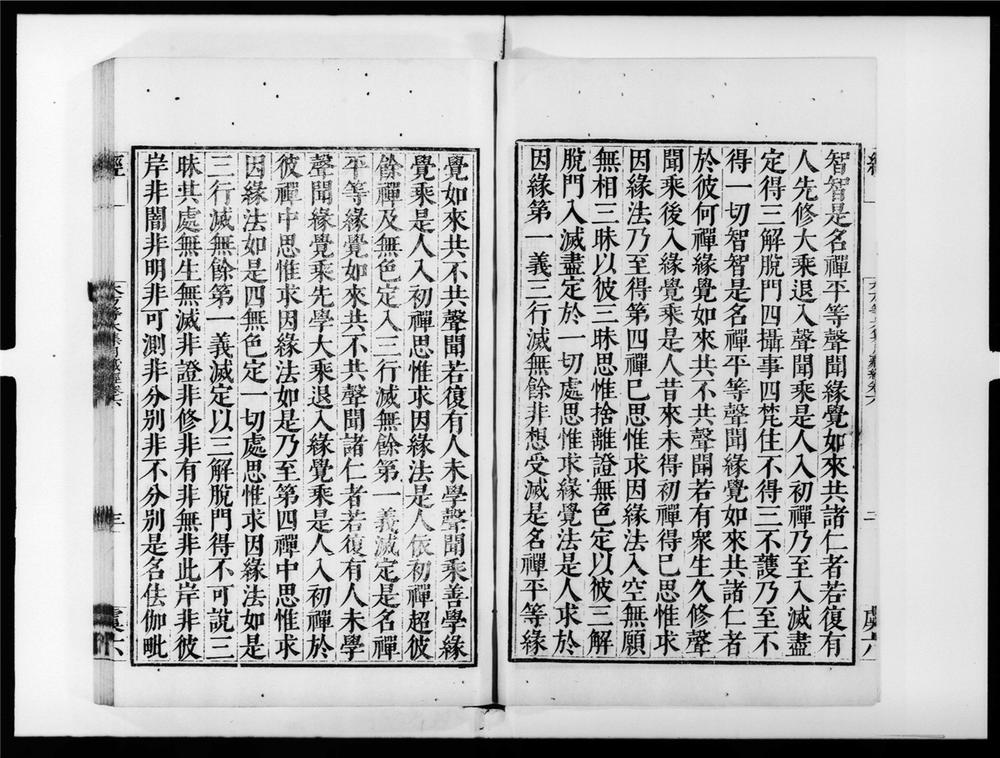 智智是名禪平等聲聞緣覺如來共諸仁者若復有
人先修大乘退入聲聞乘是人入初禪乃至入滅盡
定得三解脫門四攝事四梵住不得三不護乃至不
得一切智智是名禪平等聲聞緣覺如來共諸仁者
於彼何禪緣覺如來共不共聲聞若有眾生久修聲
聞乘後入緣覺乘是人昔來未得初禪得已思惟求
因緣法乃至得第四禪已思惟求因緣法入空無願
無相三昧以彼三昧思惟捨離證無色定以彼三解
脫門入滅盡定於一切處思惟求緣覺法是人求於
因緣第一義三行滅無餘非想受滅是名禪平等緣
覺如來共不共聲聞若復有人未學聲聞乘善學緣
覺乘是人入初禪思惟求因緣法是人依初禪超彼
餘禪及無色定入三行滅無餘第一義滅定是名禪
平等緣覺如來共不共聲聞諸仁者若復有人未學
聲聞緣覺乘先學大乘退入緣覺乘是人入初禪於
彼禪中思惟求因緣法如是乃至第四禪中思惟求
因緣法如是四無色定一切處思惟求因緣法如是
三行滅無餘第一義滅定以三解脫門得不可說三
昧共處無生無滅非證非修非有非無非此岸非彼
岸非闇非明非可測非分別非不分別是名佉伽毗
經
三
虞六